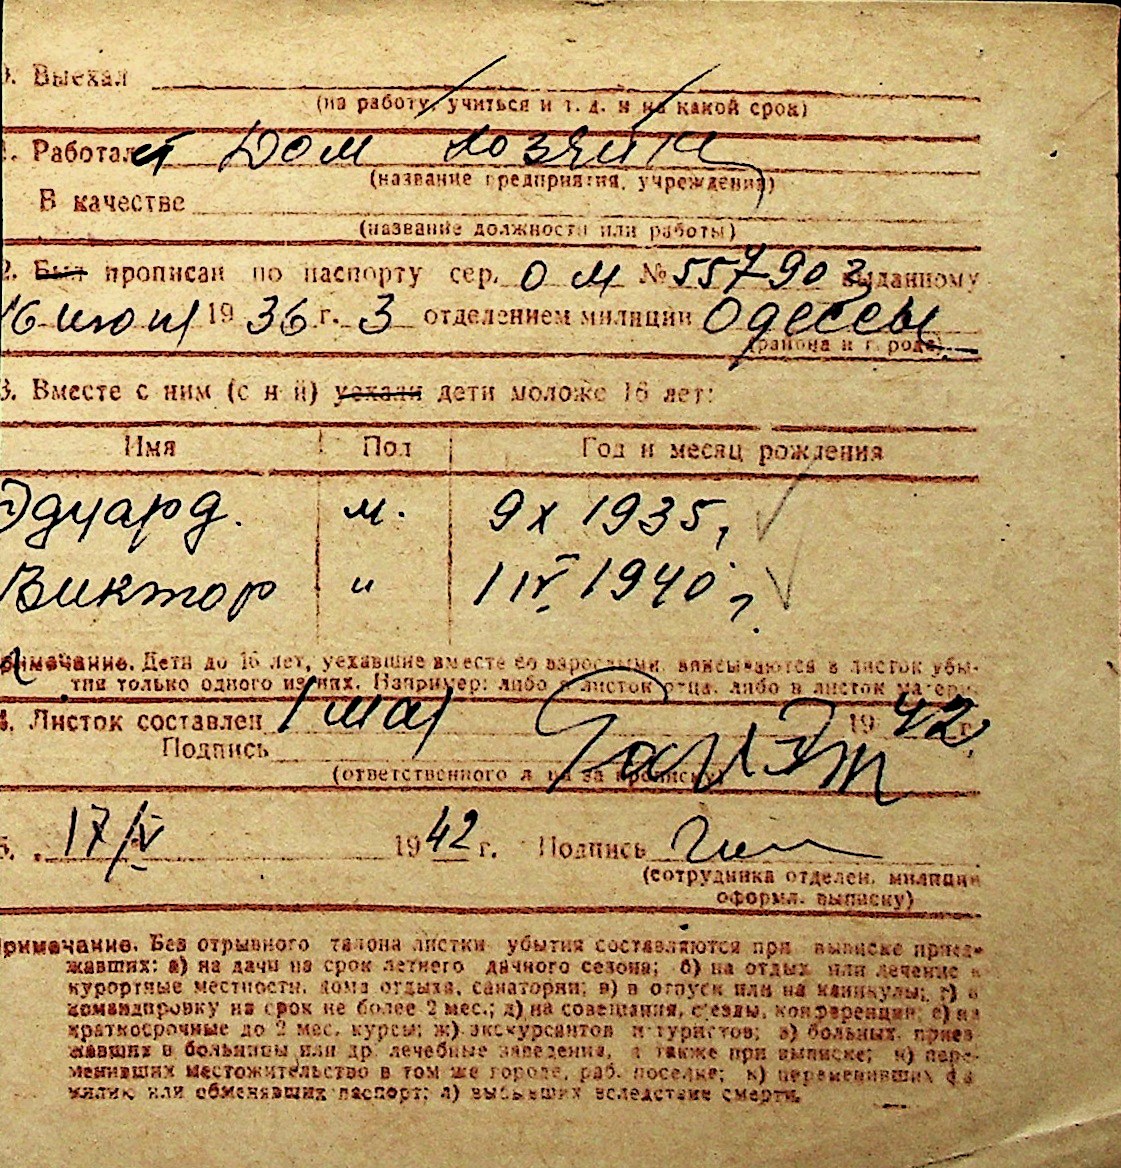 0. Выехал
(на работу, учиться и т. д. и на какой срок)
1. Работает Дом хозяйка
(название предприятия, учреждения)
В качестве
(название должности или работы)
2. Был прописан по паспорту сер. ОМ № 557903 выданному
16 июня 1936 г. 3 отделением милиции Одессы
(района и города)
3. Вместе с ним (с н й) уехали дети моложе 16 лет:
Имя Пол Год и месяц рождения
Эдуард. м. 9 X 1935,
Виктор " 1 IV. 1940
Примечание. Дети до 16 лет, уехавшие вместе со взрослыми, вписываются в листок убы-
тия только одного из них. Например: либо в листок отца, либо в листок матери.
4. Листок составлен 1 мая 1942 г.
Подпись
(ответственного лица за прописку)
5. 17/V 1942 г. Подпись
(сотрудника отделен. милиции
оформл. выписку)
Примечание. Без отрывного талона листки убытия составляются при выписке приез-
жавших: а) на дачи на срок летнего дачного сезона; б) на отдых или лечение в
курортные местности, дома отдыха, санатории; в) в отпуск или на каникулы; г) в
командировку на срок не более 2 мес.; д) на совещания, съезды, конференции; е) на
краткосрочные до 2 мес. курсы; ж) экскурсантов и туристов; з) больных, приез-
жавших в больницы или др. лечебные заведения, а также при выписке; и) пере-
менивших местожительство в том же городе, раб. поселке; к) переменивших фа-
милию или обменявших паспорт; л) выбывших вследствие смерти.